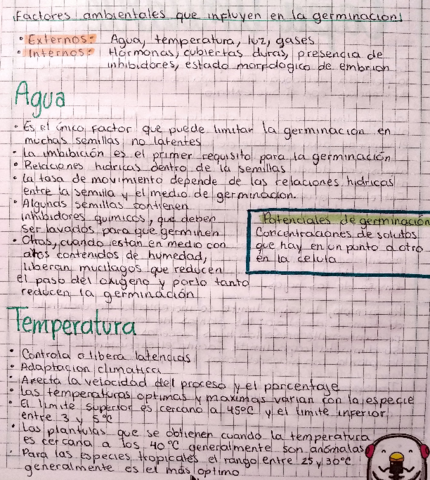 ¡Factores ambientales que influyen en la germinacion!
• Externos: Agua, temperatura, luz, gases
• Internos: Hormonas, cubiertas duras, presencia de
inhibidores, estado morfologico de embrion
Agua
• Es el único factor que puede limitar la germinacion en
muchas semillas no latentes
• La imbibición es el primer requisito para la germinación
• Relaciones hidricas dentro de la semillas
• La tasa de movimiento depende de las relaciones hidricas
entre la semilla y el medio de germinacion.
• Algunas semillas contienen
inhibidores quimicos, que deben
ser lavados para que germinen
• Otras, cuando estan en medio con
altos contenidos de humedad,
liberan mucilagos que reducen
el paso del oxigeno y por lo tanto
reducen la germinación
Potenciales de germinación
Concentraciones de solutos
que hay en un punto a otro
en la celula
Temperatura
• Controla o libera latencias
• Adaptacion climatica
• Afecta la velocidad del proceso y el porcentaje
• Las temperaturas optimas y maximas varian con la especie
• El limite superior es cercano a 45°C y el limite inferior
entre 3 y 5°C
• Las plantulas que se obtienen cuando la temperatura
es cercana a los 40°C generalmente son anomalas
• Para las especies tropicales el rango entre 25 y 30°C
generalmente es el más optimo